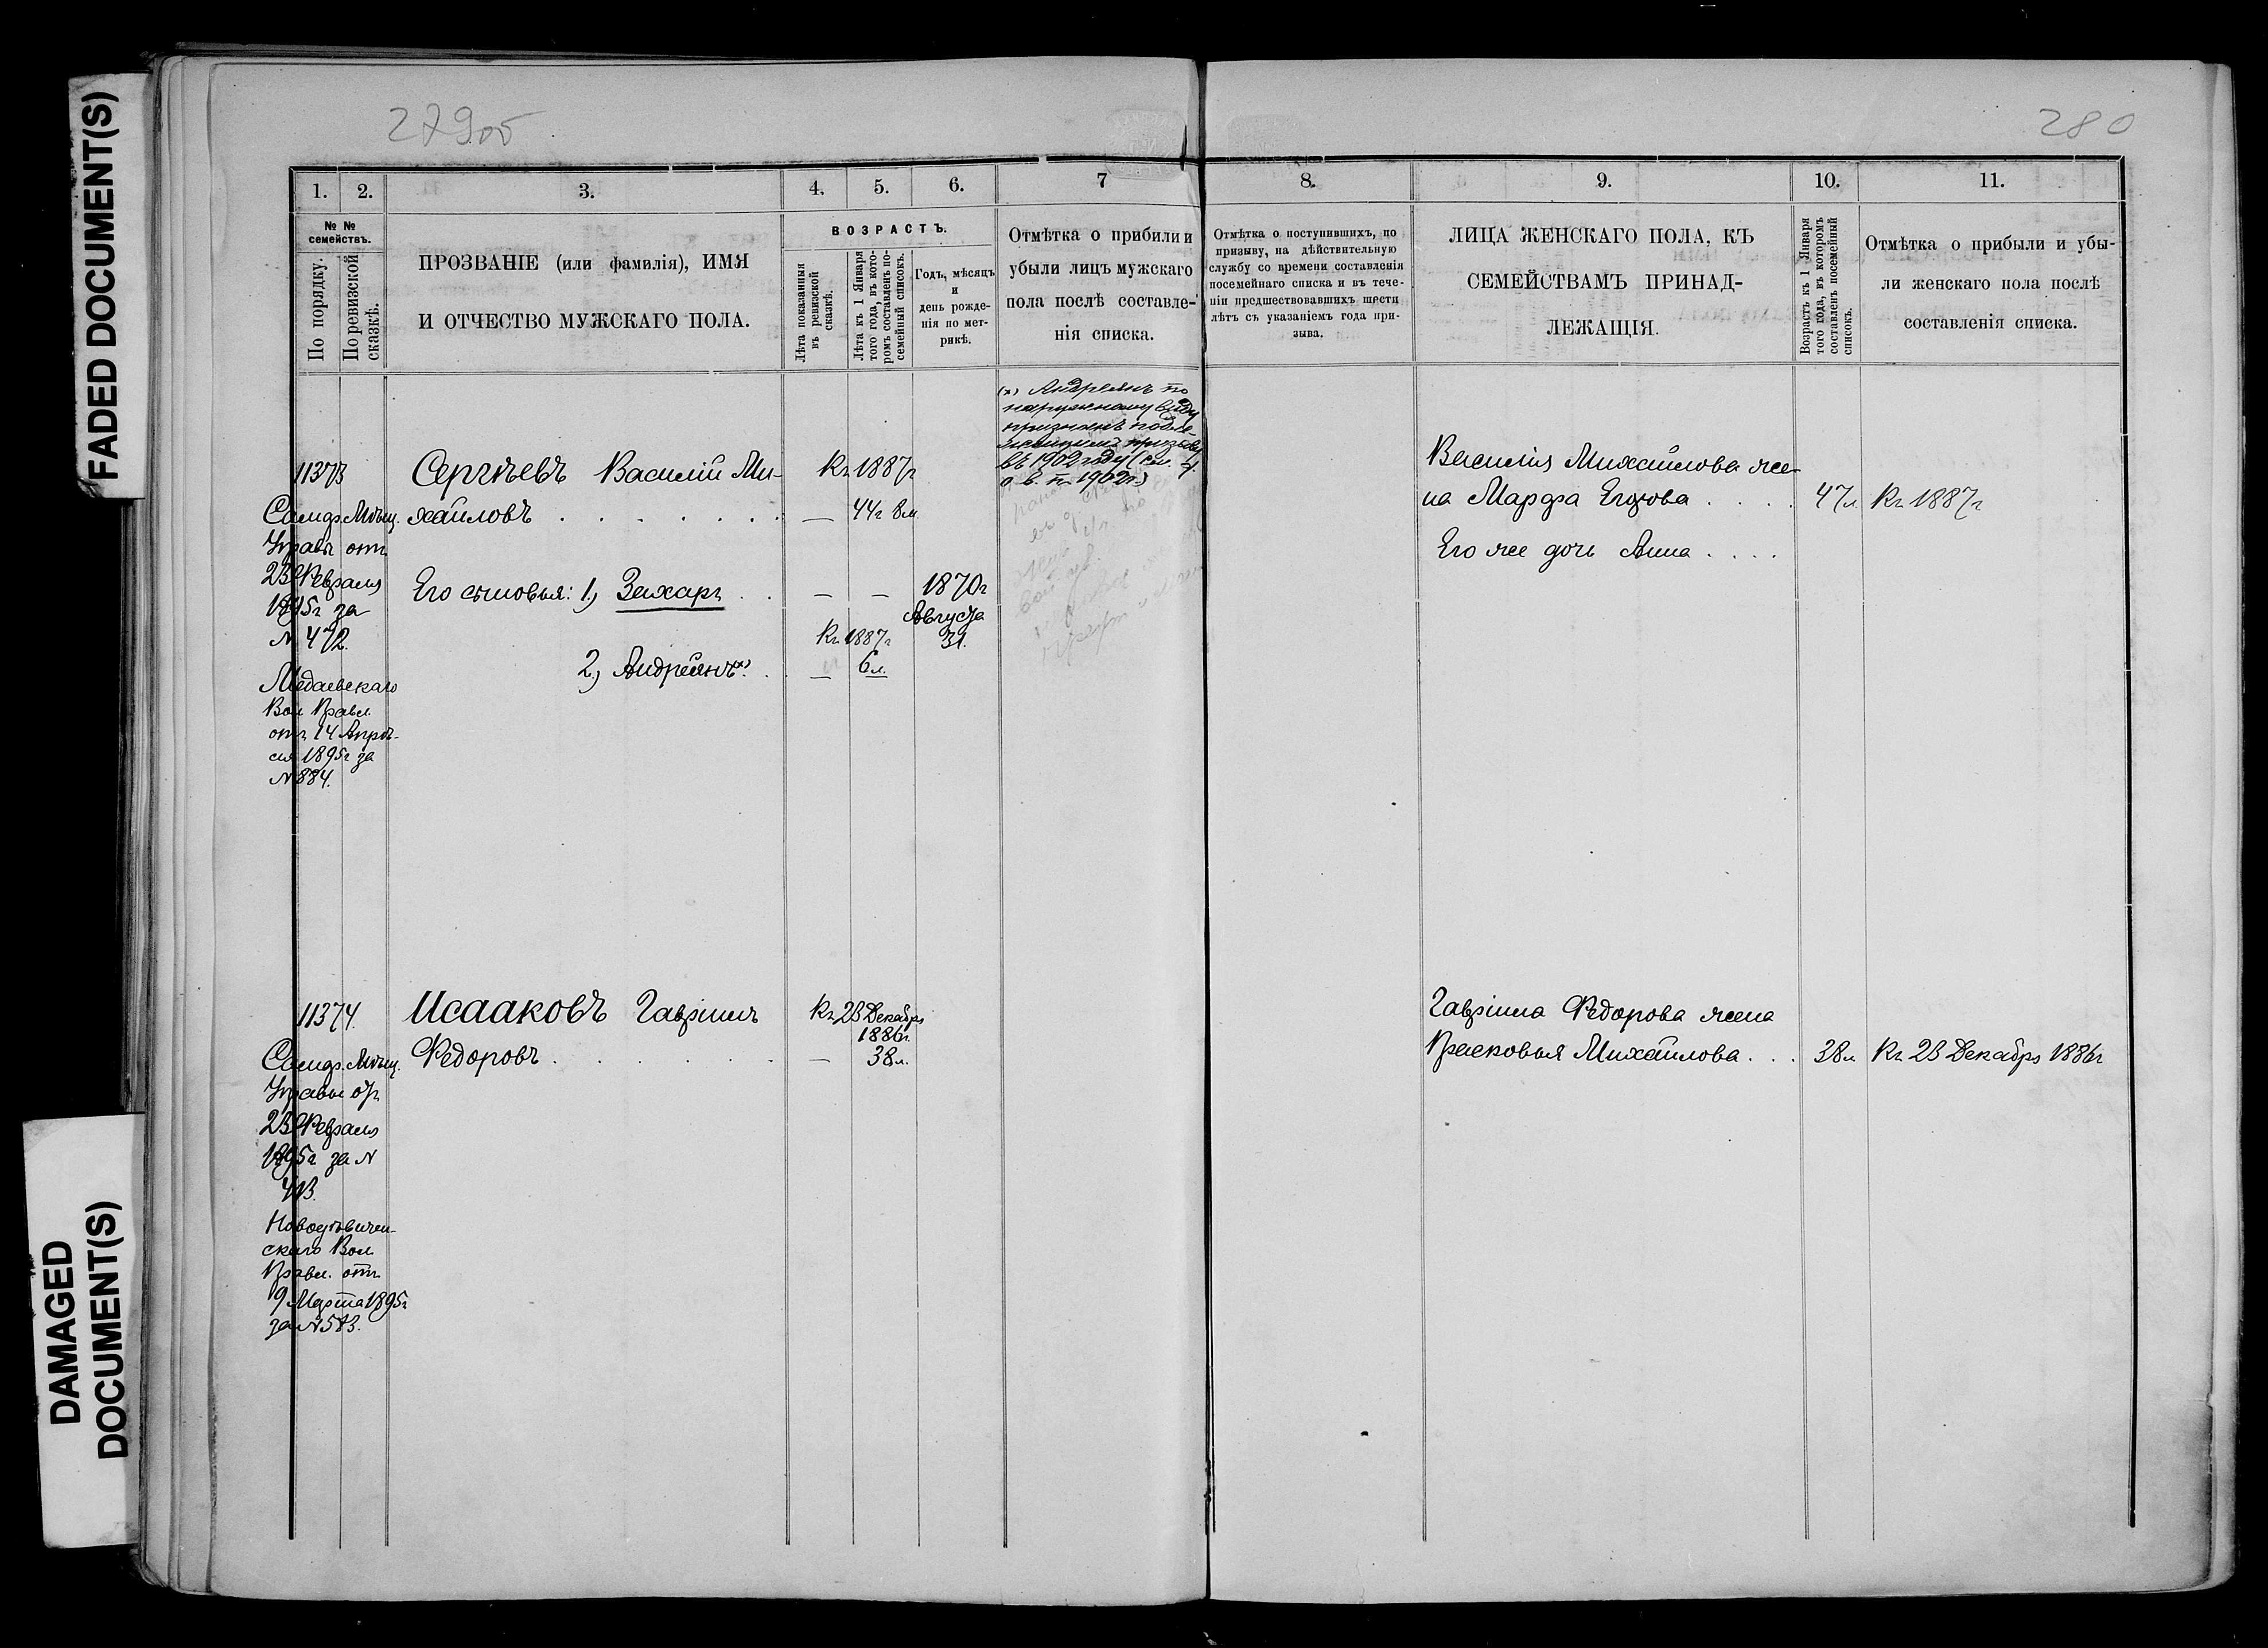 FADED DOCUMENT(S)
DAMAGED
DOCUMENT(S)
279об
280
1. 2. 3. 4. 5. 6. 7 8. 9. 10. 11.
№ №
семействъ.
По порядку.
По ревизской
сказкѣ.
ПРОЗВАНІЕ (или фамилія), ИМЯ
И ОТЧЕСТВО МУЖСКАГО ПОЛА.
ВОЗРАСТЪ.
Лѣта показанныя
въ ревизской
сказкѣ.
Лѣта къ 1 Января
того года, въ кото-
ромъ составленъ по-
семейный списокъ.
Годъ, мѣсяцъ
и
день рожде-
нія по мет-
рикѣ.
Отмѣтка о прибыли и
убыли лицъ мужскаго
пола послѣ составле-
нія списка.
Отмѣтка о поступившихъ, по
призыву, на дѣйствительную
службу со времени составленія
посемейнаго списка и въ тече-
ніи предшествовавшихъ шести
лѣтъ съ указаніемъ года при-
зыва.
ЛИЦА ЖЕНСКАГО ПОЛА, КЪ
СЕМЕЙСТВАМЪ ПРИНАД-
ЛЕЖАЩІЯ.
Возрастъ къ 1 Января
того года, въ которомъ
составленъ посемейный
списокъ.
Отмѣтка о прибыли и убы-
ли женскаго пола послѣ
составленія списка.
11373
Самар. Мѣщ.
Управы отъ
23 Февраля
1895г за
№ 472.
Медаевскаго
Вол Правл.
отъ 14 Апрѣ-
ля 1895г за
№ 884.
Сергѣевъ Василій Ми-
хайловъ . . . . . . . — 44г 8м
Къ 1887г
Его сыновья: 1, Захаръ . . — — 1870г
Августа
31.
Къ 1887г
2, Андреянъ x) . . — 6л.
(x) Андреянъ по
наружному виду
признанъ подле-
жащимъ призыву
въ 1902 году (см.
о в. п. 1902г)
Василія Михайлова же-
на Марфа Егорова . . . . 47л Къ 1887г
Его же дочь Анна . . . .
11374.
Самар. Мѣщ.
Управы отъ
23 Февраля
1895г за №
Правл. отъ
9 Марта 1895г
скаго Вол
Исааковъ Гавріилъ
Федоровъ . . . . . . — 38л.
Къ 23 Декабря
1886г.
Гавріила Федорова жена
Прасковья Михайлова . . . 38л Къ 23 Декабря 1886г